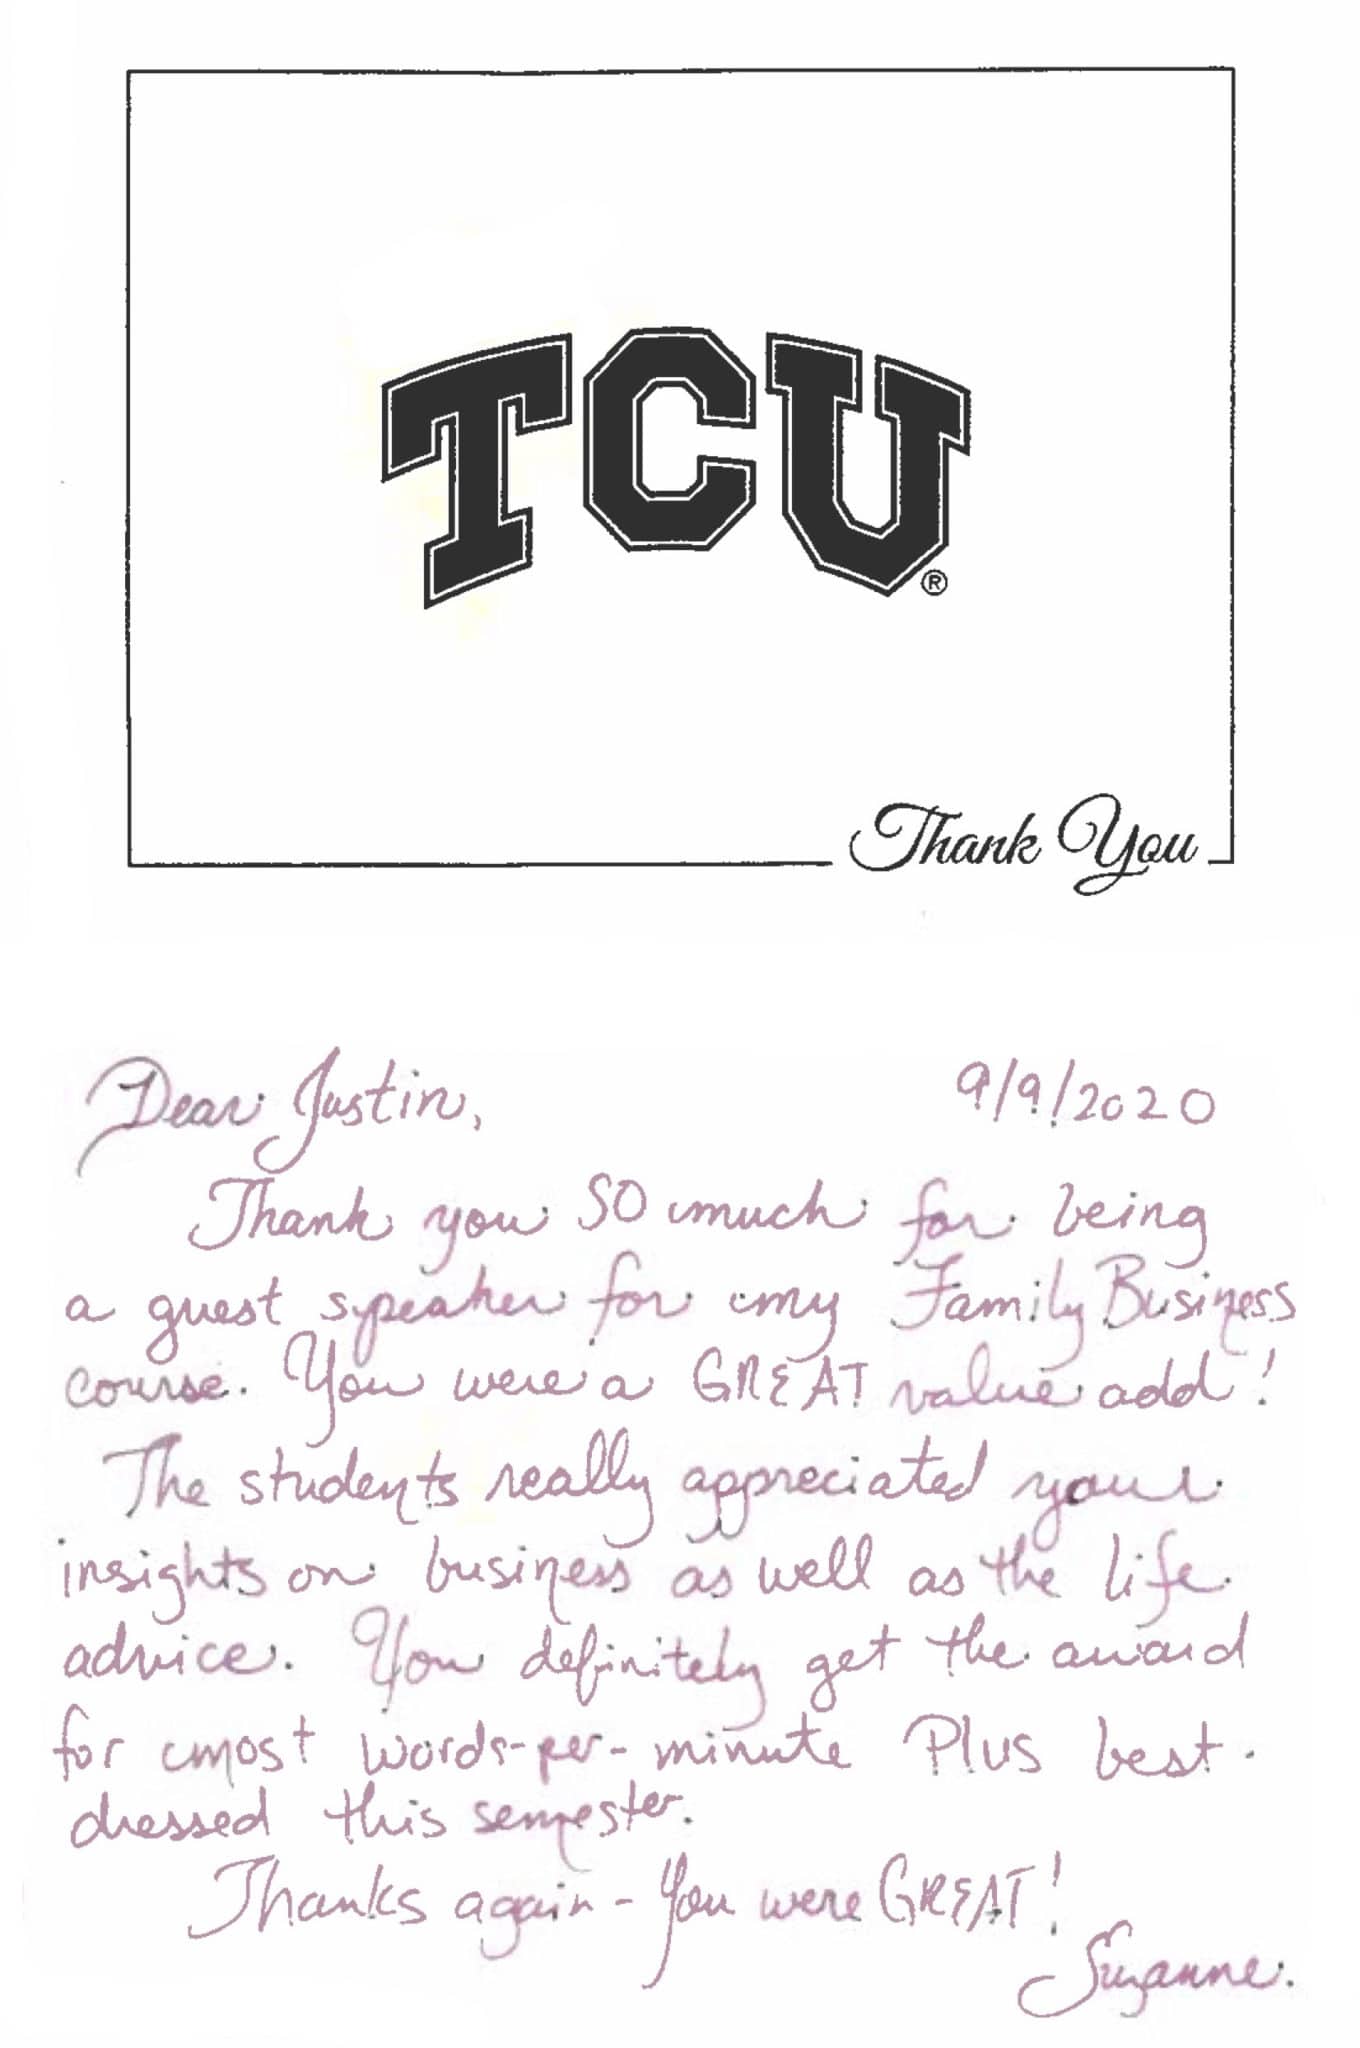 TCU
®
Thank You
Dear Justin,
9/9/2020
Thank you SO much for being
a guest speaker for my Family Business
course. You were a GREAT value add!
The students really appreciated your
insights on business as well as the life
advice. You definitely get the award
for most words-per-minute Plus best
dressed this semester.
Thanks again - You were GREAT!
Suzanne.